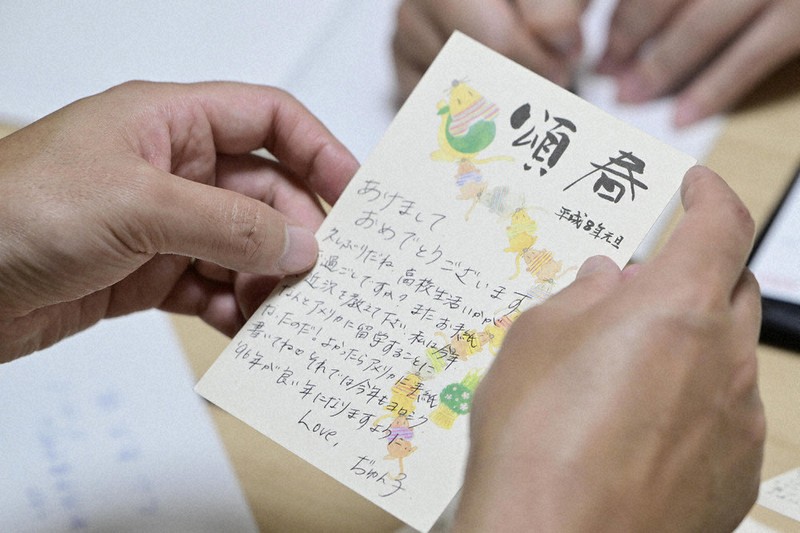 頌春
平成8年元旦
あけまして
おめでとうございます
久しぶりだね 高校生活いかが
過ごしですか? またお手紙
近況を教えて下さい 私は今年
なんとアメリカに留学することに
なったのだ! よかったらアメリカに手紙
書いてね♡ それでは今年もヨロシク
'96年が良い年になりますように…
Love,
ぢゅん子